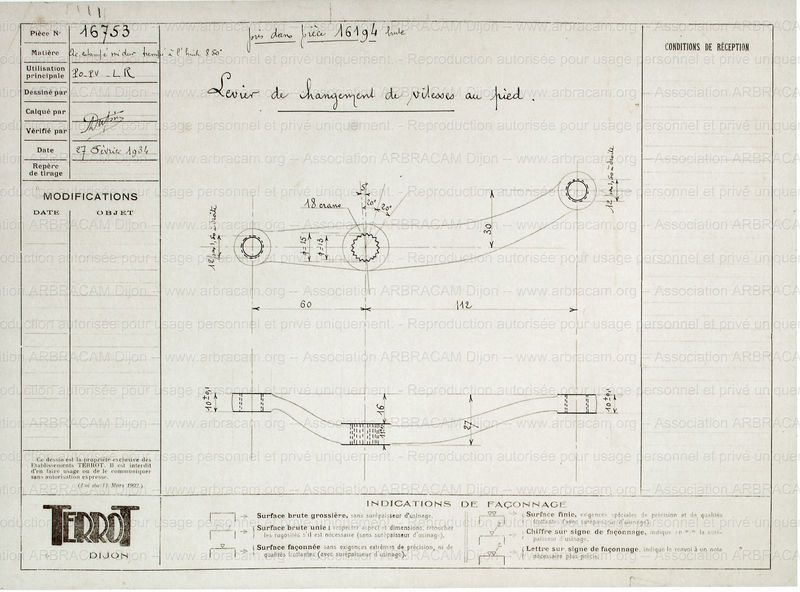 Pièce N° 16753
pris dans pièce 16194 brute
Matière
Utilisation principale
L R
Dessiné par
Calqué par
Vérifié par
Date 27 Février 1934
Repère de tirage
MODIFICATIONS
DATE OBJET
CONDITIONS DE RÉCEPTION
Levier de changement de vitesses au pied.
18 crans
20°
12 à droite
12 à droite
30
60
112
10 ± 0,1
16
27
10 ± 0,1
Ce dessin est la propriété exclusive des
Etablissements TERROT. Il est interdit
d'en faire usage ou de le communiquer
sans autorisation expresse.
(Loi du 11 Mars 1902.)
TERROT
DIJON
INDICATIONS DE FAÇONNAGE
Surface brute grossière, sans surépaisseur d'usinage.
Surface brute unie : respecter aspect et dimensions, retoucher
les rugosités s'il est nécessaire (sans surépaisseur d'usinage).
Surface façonnée sans exigences extrêmes de précision, ni de
qualités frottantes (avec surépaisseur d'usinage).
Surface finie, exigences spéciales de précision et de qualités
frottantes (avec surépaisseur d'usinage).
Chiffre sur signe de façonnage, indique en m/m la surépaisseur d'usinage.
Lettre sur signe de façonnage, indique le renvoi à un nota
nécessaire plus précis.
Association ARBRACAM Dijon -- www.arbracam.org -- Reproduction autorisée pour usage personnel et privé uniquement.